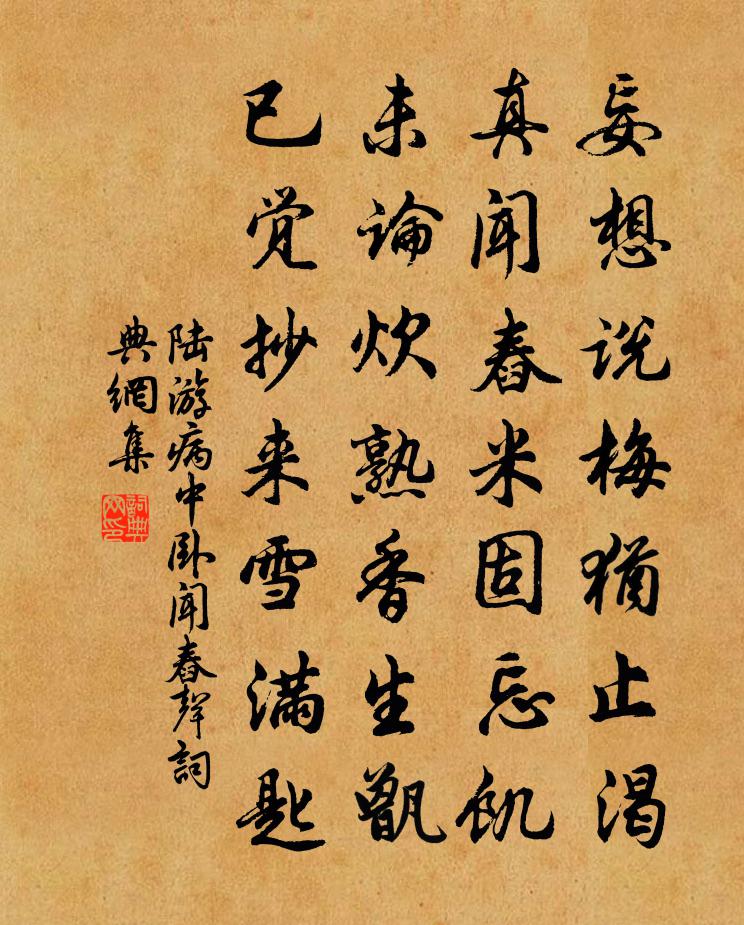 妄想说梅犹止渴
真闻舂米固忘饥
未论炊熟香生甑
已觉抄来雪满匙
陆游病中卧闻舂聲詞
典網集
詞典網印